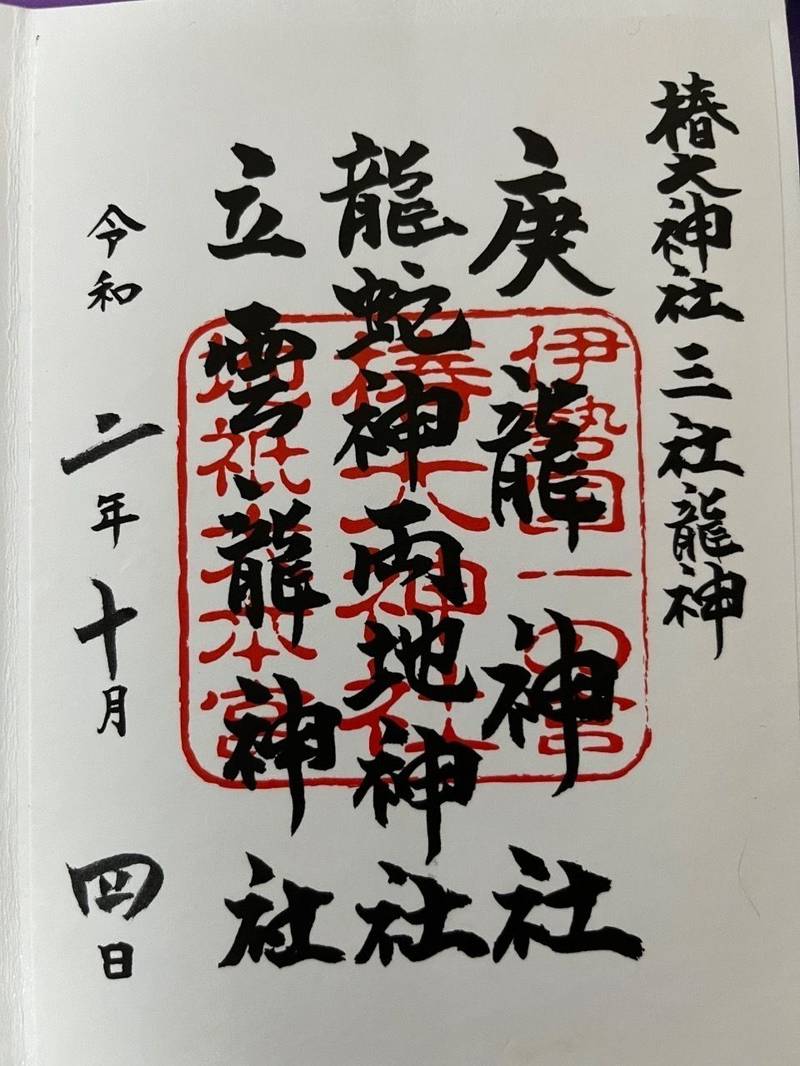 椿大神社 三社龍神
庚龍神社
龍蛇神両地神社
立雲龍神社
令和二年十月四日
伊勢国一の宮
椿大神社
地祇大本宮